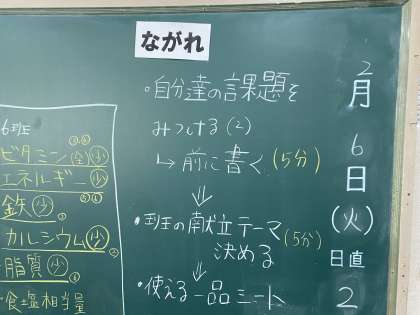 ながれ
・自分達の課題を
みつける(2)
↳ 前に書く (5分)
⇓
・班の献立テーマ
決める (5分)
⇓
・使える一品シート
2
月
6
日
(火)
日直
2
6班
ビタミン
エネルギー 少
鉄 少
カルシウム 少
脂質 少
食塩相当量